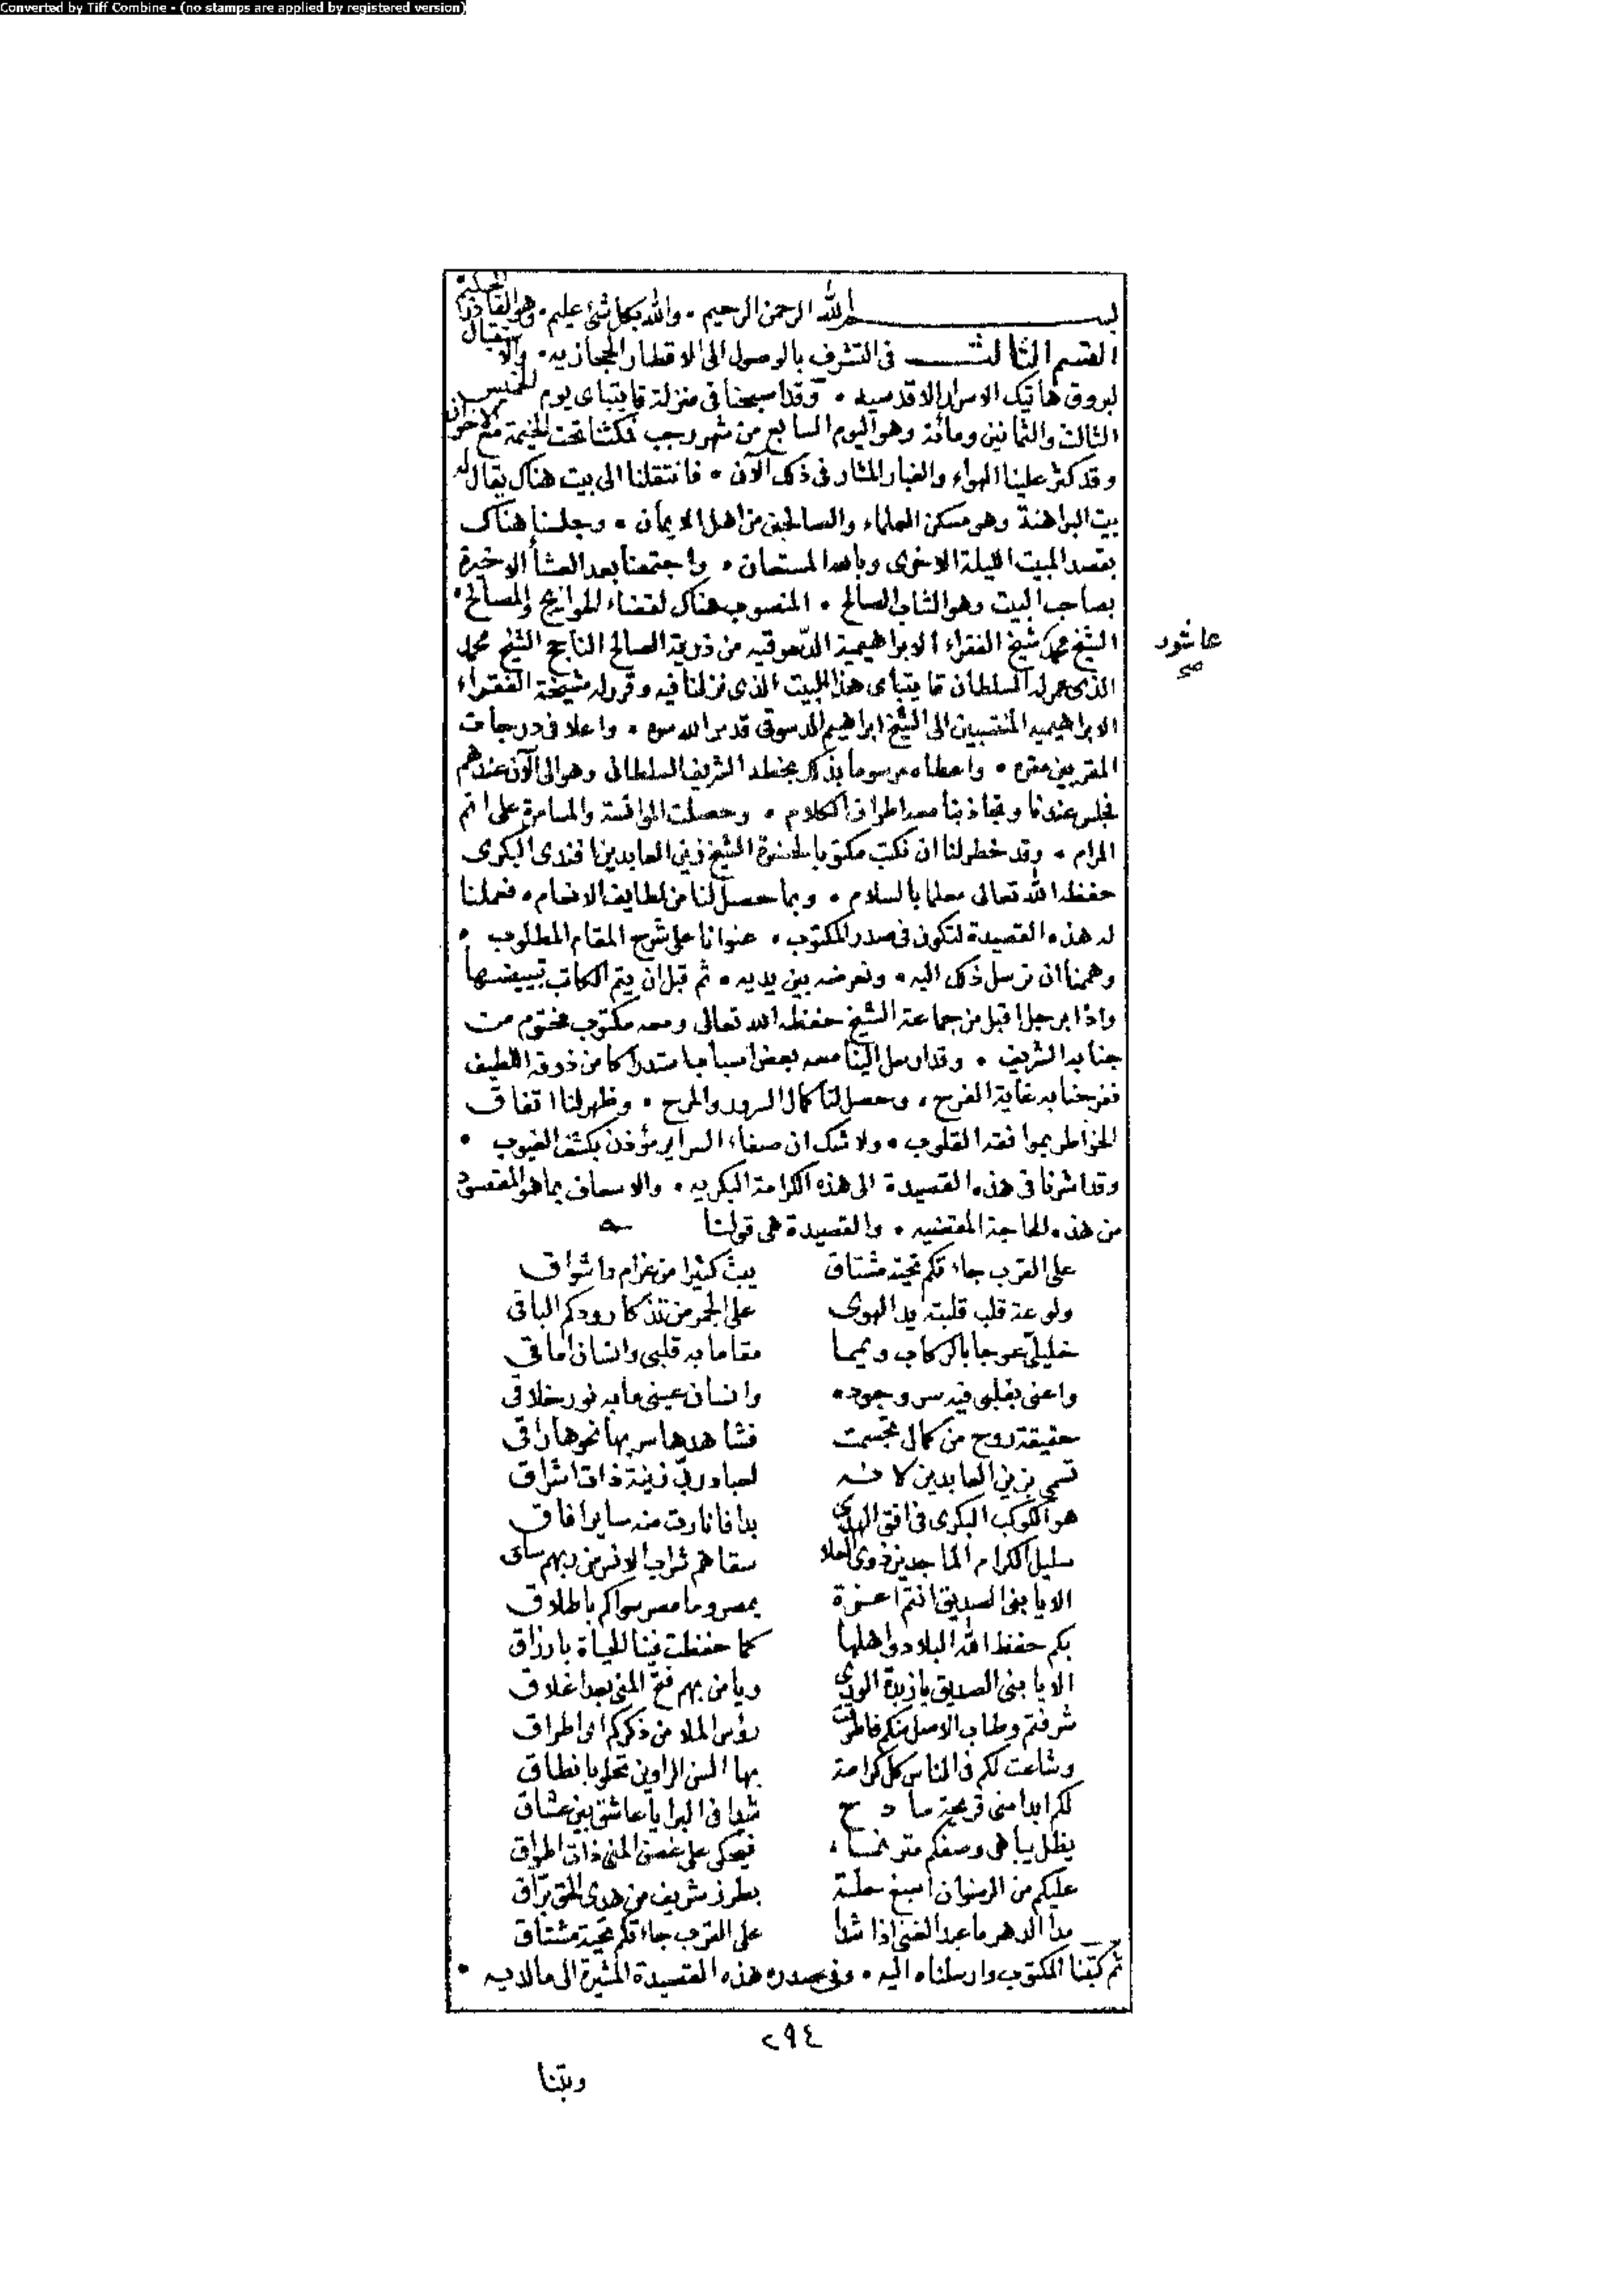 Converted by Tiff Combine - (no stamps are applied by registered version)
بسم الله الرحمن الرحيم • والله بكل شئ عليم • وهو القادر
القسم الثالث في التشرف بالوصول الى الاقطار الحجازيه • والاستقبال
لبروق هاتيك الاسرار الاقدسيه • وقد اصبحنا في منزلة قايتباى يوم الخميس
الثالث والثمانين ومائة وهو اليوم السابع من شهر رجب فمكثنا تحت الخيمة مع الاخوان
وقد كثر علينا الهواء والغبار المثار في ذلك الآن • فانتقلنا الى بيت هناك يقال له
بيت البراهنة وهو مسكن العلماء والصالحين من اهل الايمان • وجلسنا هناك
بقصد المبيت الليلة الاخرى وبالله المستعان • واجتمعنا بعد العشأ الاخيرة
بصاحب البيت وهو الشاب الصالح • المنصوب هناك لقضاء الحوايج والمصالح •
الشيخ محمد شيخ الفقراء الابراهيمية الدسوقيه من ذرية الصالح الناجح الشيخ محمد
عاشور
صح
الذى عمر له السلطان قايتباى هذا البيت الذى نزلنا فيه وقرر له مشيخة الفقراء
الابراهيميه المنتسبين الى الشيخ ابراهيم الدسوقى قدس الله سره • واعلا في درجات
المقربين مقره • واعطاه مرسوما بذلك بخطه الشريف السلطانى وهو الى الآن عندهم
فجلس عندنا وتجاذبنا معه اطراف الكلام • وحصلت الموانسة والمسامرة على اتم
المرام • وقد خطر لنا ان نكتب مكتوبا لحضرة الشيخ زين العابدين افندى البكرى
حفظه الله تعالى معلما بالسلام • وبما حصل لنا من لطايف الانعام • فعملنا
له هذه القصيدة لتكون في صدر المكتوب • عنوانا على شرح المقام المطلوب •
وهممنا ان نرسل ذلك اليه • ونعرضه بين يديه • ثم قبل ان يتم الكاتب تبييضها
واذا برجل اقبل من جماعة الشيخ حفظه الله تعالى ومعه مكتوب مختوم من
جنابه الشريف • وقد ارسل الينا معه بعض اسباب مستدركا من ذوقه اللطيف
ففرحنا به غاية الفرح • وحصل لنا كمال السرور والمرح • وظهر لنا اتفاق
الخواطر بموافقة القلوب • ولا شك ان صفاء السراير مؤذن بكشف الغيوب •
وقد اشرنا في هذه القصيدة الى هذه الكرامة البكريه • والاسعاف بما هو المقصود
من هذه الحاجة المقتضيه • والقصيدة هى قولنا
على القرب جاءتكم تحية مشتاق يبث كثيرا من غرام واشواق
ولوعة قلب قلبته يد الهوى على الجمر من تذكار ودكم الباقى
خليلىّ عوجا بالركاب ويمما مقاما به قلبى وانسان اماقى
واعنى بقلبى فيه سر وجوده وانسان عينى ما به نور خلاقى
حقيقة روح من كمال تجسمت فشاهدها سر بها نحوها راقى
تسمى بزين العابدين لانه لعباد ربى زينة ذات اشراق
هو الكوكب البكرى في افق الهدى بدا فانارت منه ساير افاق
سليل الكرام الماجدين ذوى العلا سقاهم شراب الانس من ربهم ساقى
الا يا بنى الصديق انتم اعزة بمصر وما مصر سواكم باطلاق
بكم حفظ الله البلاد واهلها كما حفظت فينا الحياة بارزاق
الا يا بنى الصديق يا زبدة الورى ويا من بهم فتح المنى بعد اغلاق
شرفتم وطاب الاصل منكم فاطرقت رؤس الملا من ذكركم اى اطراق
وشاعت لكم في الناس كل كرامة بها السن الراوين تحلو بانطاق
لكم ابدا منى قريحة مادح شدا في البرايا عاشق بين عشاق
يظل يباهى وصفكم مترنما فيحكى على غصن المنى ذات اطواق
عليكم من الرضوان اسبغ حلة بطرز شريف من هدى الحق برّاق
مدا الدهر ما عبد الغنى اذا شدا على القرب جاءتكم تحية مشتاق
ثم كتبنا المكتوب وارسلناه اليه • وفى صدره هذه القصيدة المشيرة الى ما لديه •
٢٩٤
وبتنا